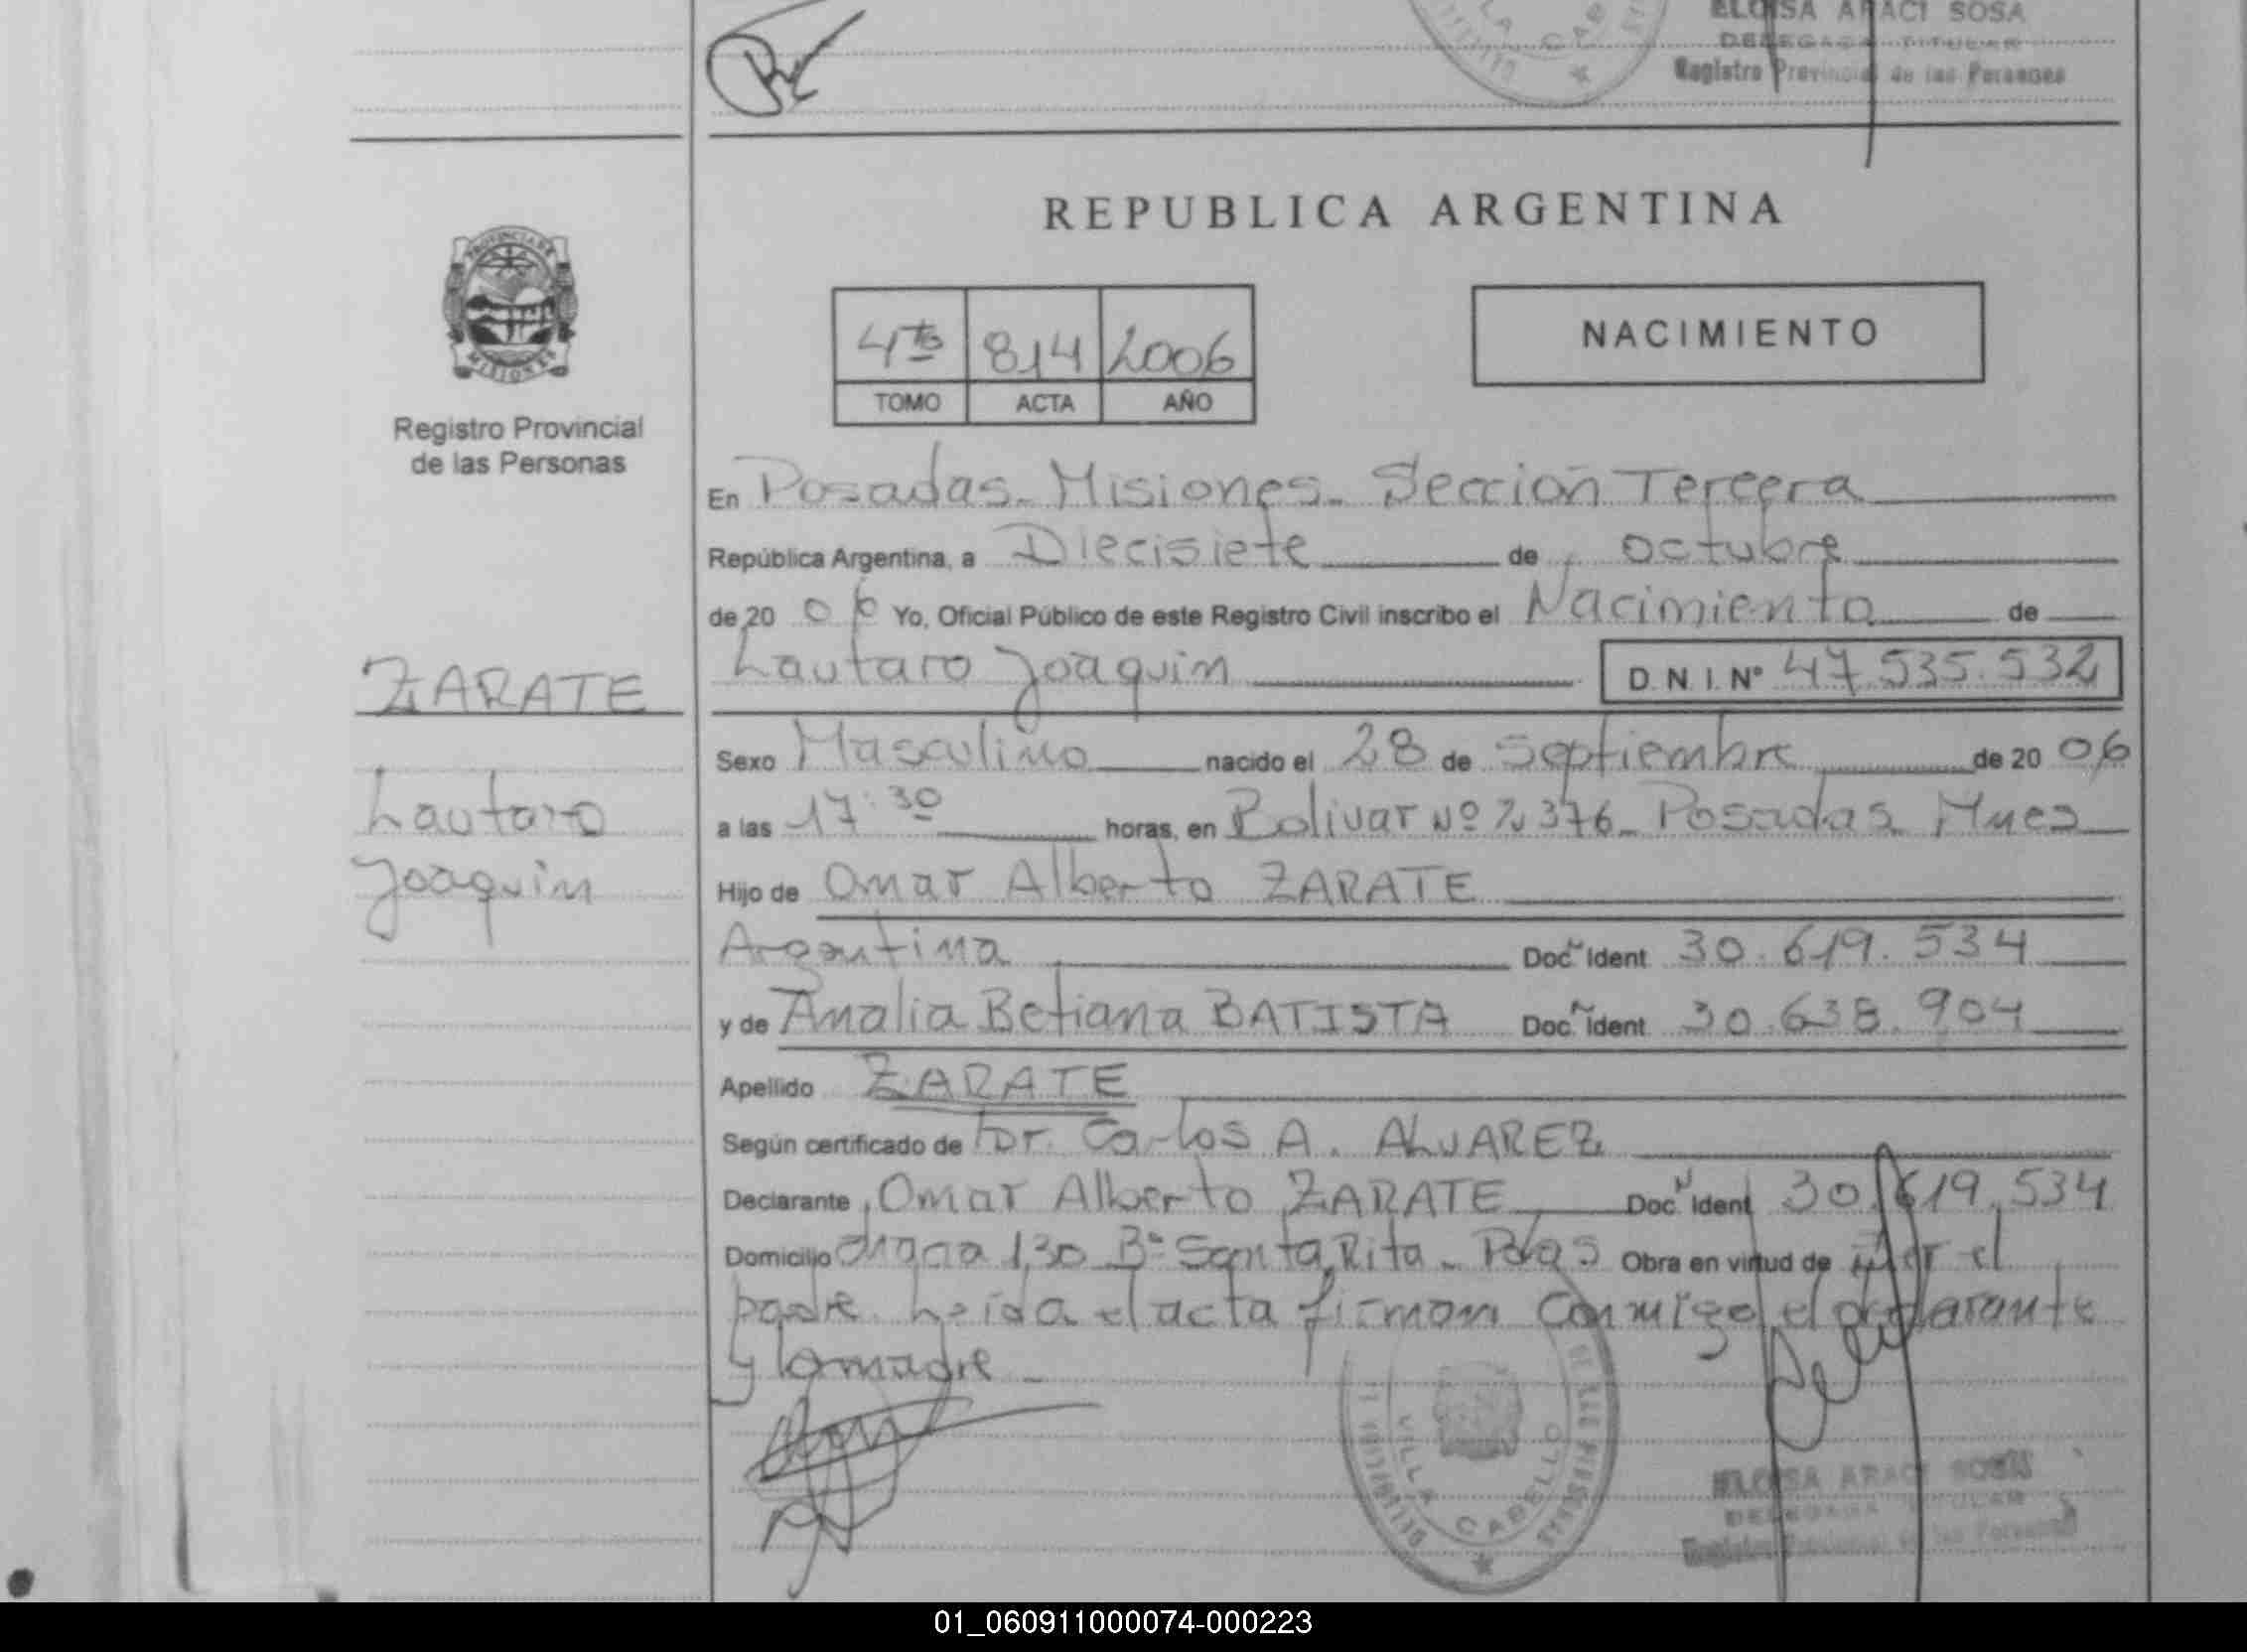 ELOISA ARACI SOSA
DELEGADA TITULAR
Registro Provincial de las Personas
REPUBLICA ARGENTINA
PROVINCIA DE
MISIONES
4to 814 2006
TOMO ACTA AÑO
NACIMIENTO
Registro Provincial
de las Personas
En Posadas - Misiones - Sección Tercera
República Argentina, a Diecisiete de octubre
de 20 06 Yo, Oficial Público de este Registro Civil inscribo el Nacimiento de
ZARATE
Lautaro Joaquin D.N.I. Nº 47.535.532
Sexo Masculino nacido el 28 de Septiembre de 20 06
Lautaro
a las 17:30 horas, en Bolivar Nº 2376 - Posadas Mnes
Joaquin
Hijo de Omar Alberto ZARATE
Argentina Doc. Ident 30.619.534
y de Analia Betiana BATISTA Doc. Ident 30.638.904
Apellido ZARATE
Según certificado de Dr. Carlos A. ALVAREZ
Declarante Omar Alberto ZARATE Doc. Ident 30.619.534
Domicilio chacra 130 Bº Santa Rita - Pdas Obra en virtud de ser el
padre. Leída el acta firman conmigo el declarante
y la madre -
VILLA CABELLO
ELOISA ARACI SOSA
DELEGADA TITULAR
Registro Provincial de las Personas
01_060911000074-000223